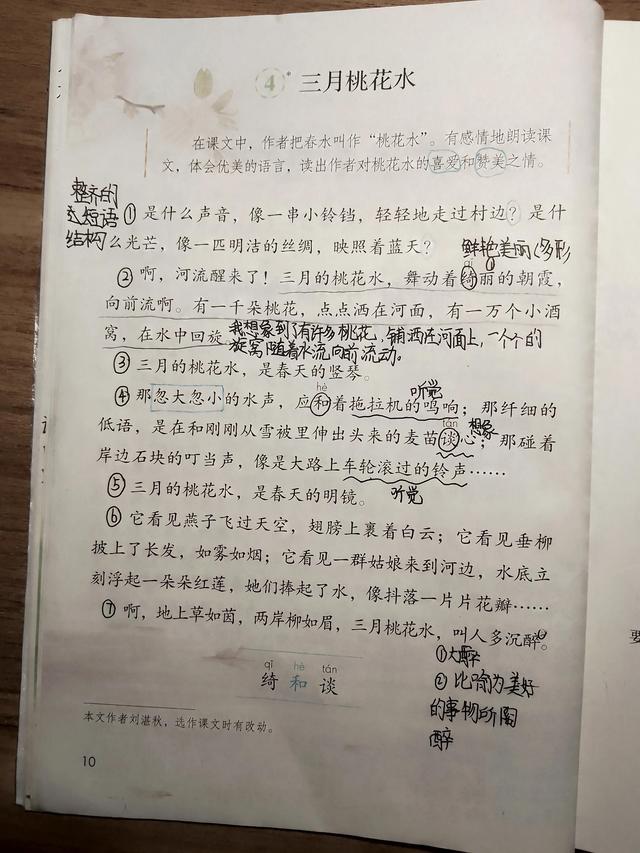 ④* 三月桃花水
在课文中，作者把春水叫作“桃花水”。有感情地朗读课
文，体会优美的语言，读出作者对桃花水的喜爱和赞美之情。
整齐的
短语
结构
① 是什么声音，像一串小铃铛，轻轻地走过村边？是什
么光芒，像一匹明洁的丝绸，映照着蓝天？
鲜艳美丽
qǐ
② 啊，河流醒来了！三月的桃花水，舞动着绮丽的朝霞，
向前流啊。有一千朵桃花，点点洒在河面，有一万个小酒
窝，在水中回旋。
我想象到了有许多桃花，铺洒在河面上，一个个的
旋窝随着水流向前流动。
③ 三月的桃花水，是春天的竖琴。
hè 听觉
④ 那忽大忽小的水声，应和着拖拉机的鸣响；那纤细的
tán 想象
低语，是在和刚刚从雪被里伸出头来的麦苗谈心；那碰着
岸边石块的叮当声，像是大路上车轮滚过的铃声……
⑤ 三月的桃花水，是春天的明镜。 听觉
⑥ 它看见燕子飞过天空，翅膀上裹着白云；它看见垂柳
披上了长发，如雾如烟；它看见一群姑娘来到河边，水底立
刻浮起一朵朵红莲，她们捧起了水，像抖落一片片花瓣……
⑦ 啊，地上草如茵，两岸柳如眉，三月桃花水，叫人多沉醉。
①大醉
②比喻为美好
的事物所陶
醉
qǐ hè tán
绮 和 谈
本文作者刘湛秋，选作课文时有改动。
10